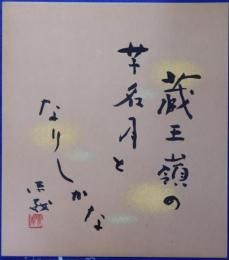 蔵王嶺の
芋名月と
なりしかな